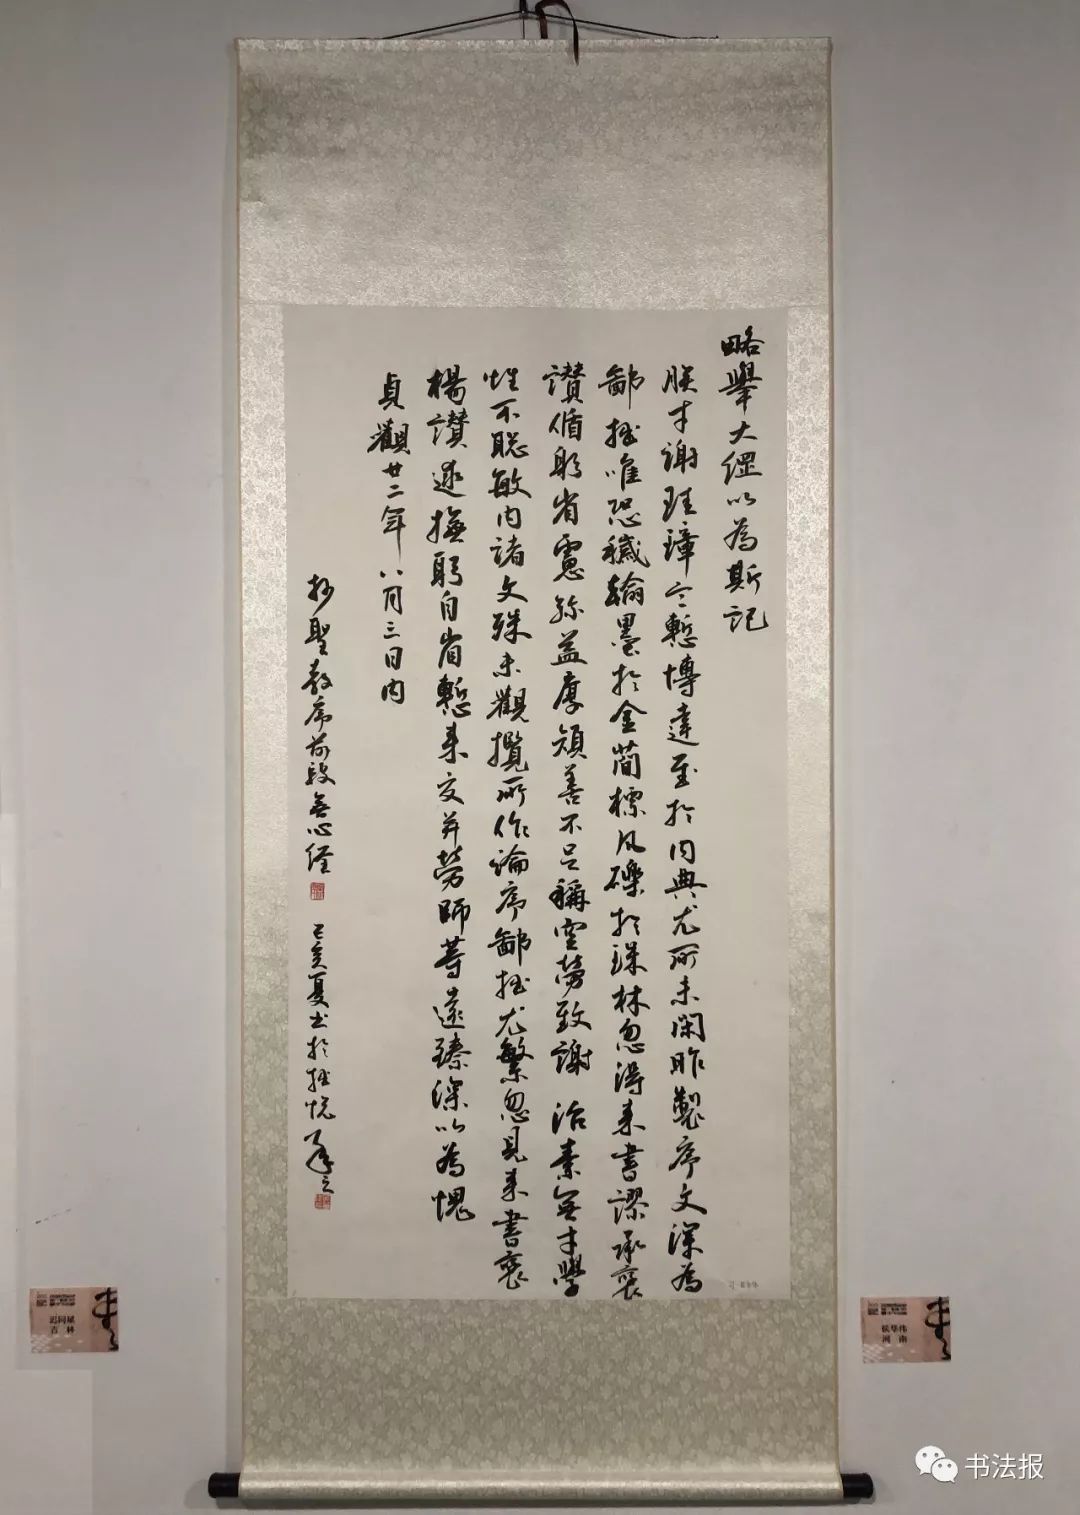 略舉大綱以為斯記
朕才謝珪璋言慙博達至於內典尤所未閑昨製序文深為
鄙拙唯恐穢翰墨於金簡標瓦礫於珠林忽得来書謬承褒
讃循躬省慮弥益厚顔善不足稱空勞致謝 治素無才學
性不聡敏内諸文殊未觀攬所作論序鄙拙尤繁忽見来書褒
楊讃述撫躬自省慙悚交并勞師等遠臻深以為愧
貞觀廿二年八月三日內
抄聖教序前段無心經
己亥夏書於
迟同斌
吉林
侯华伟
河南
书法报